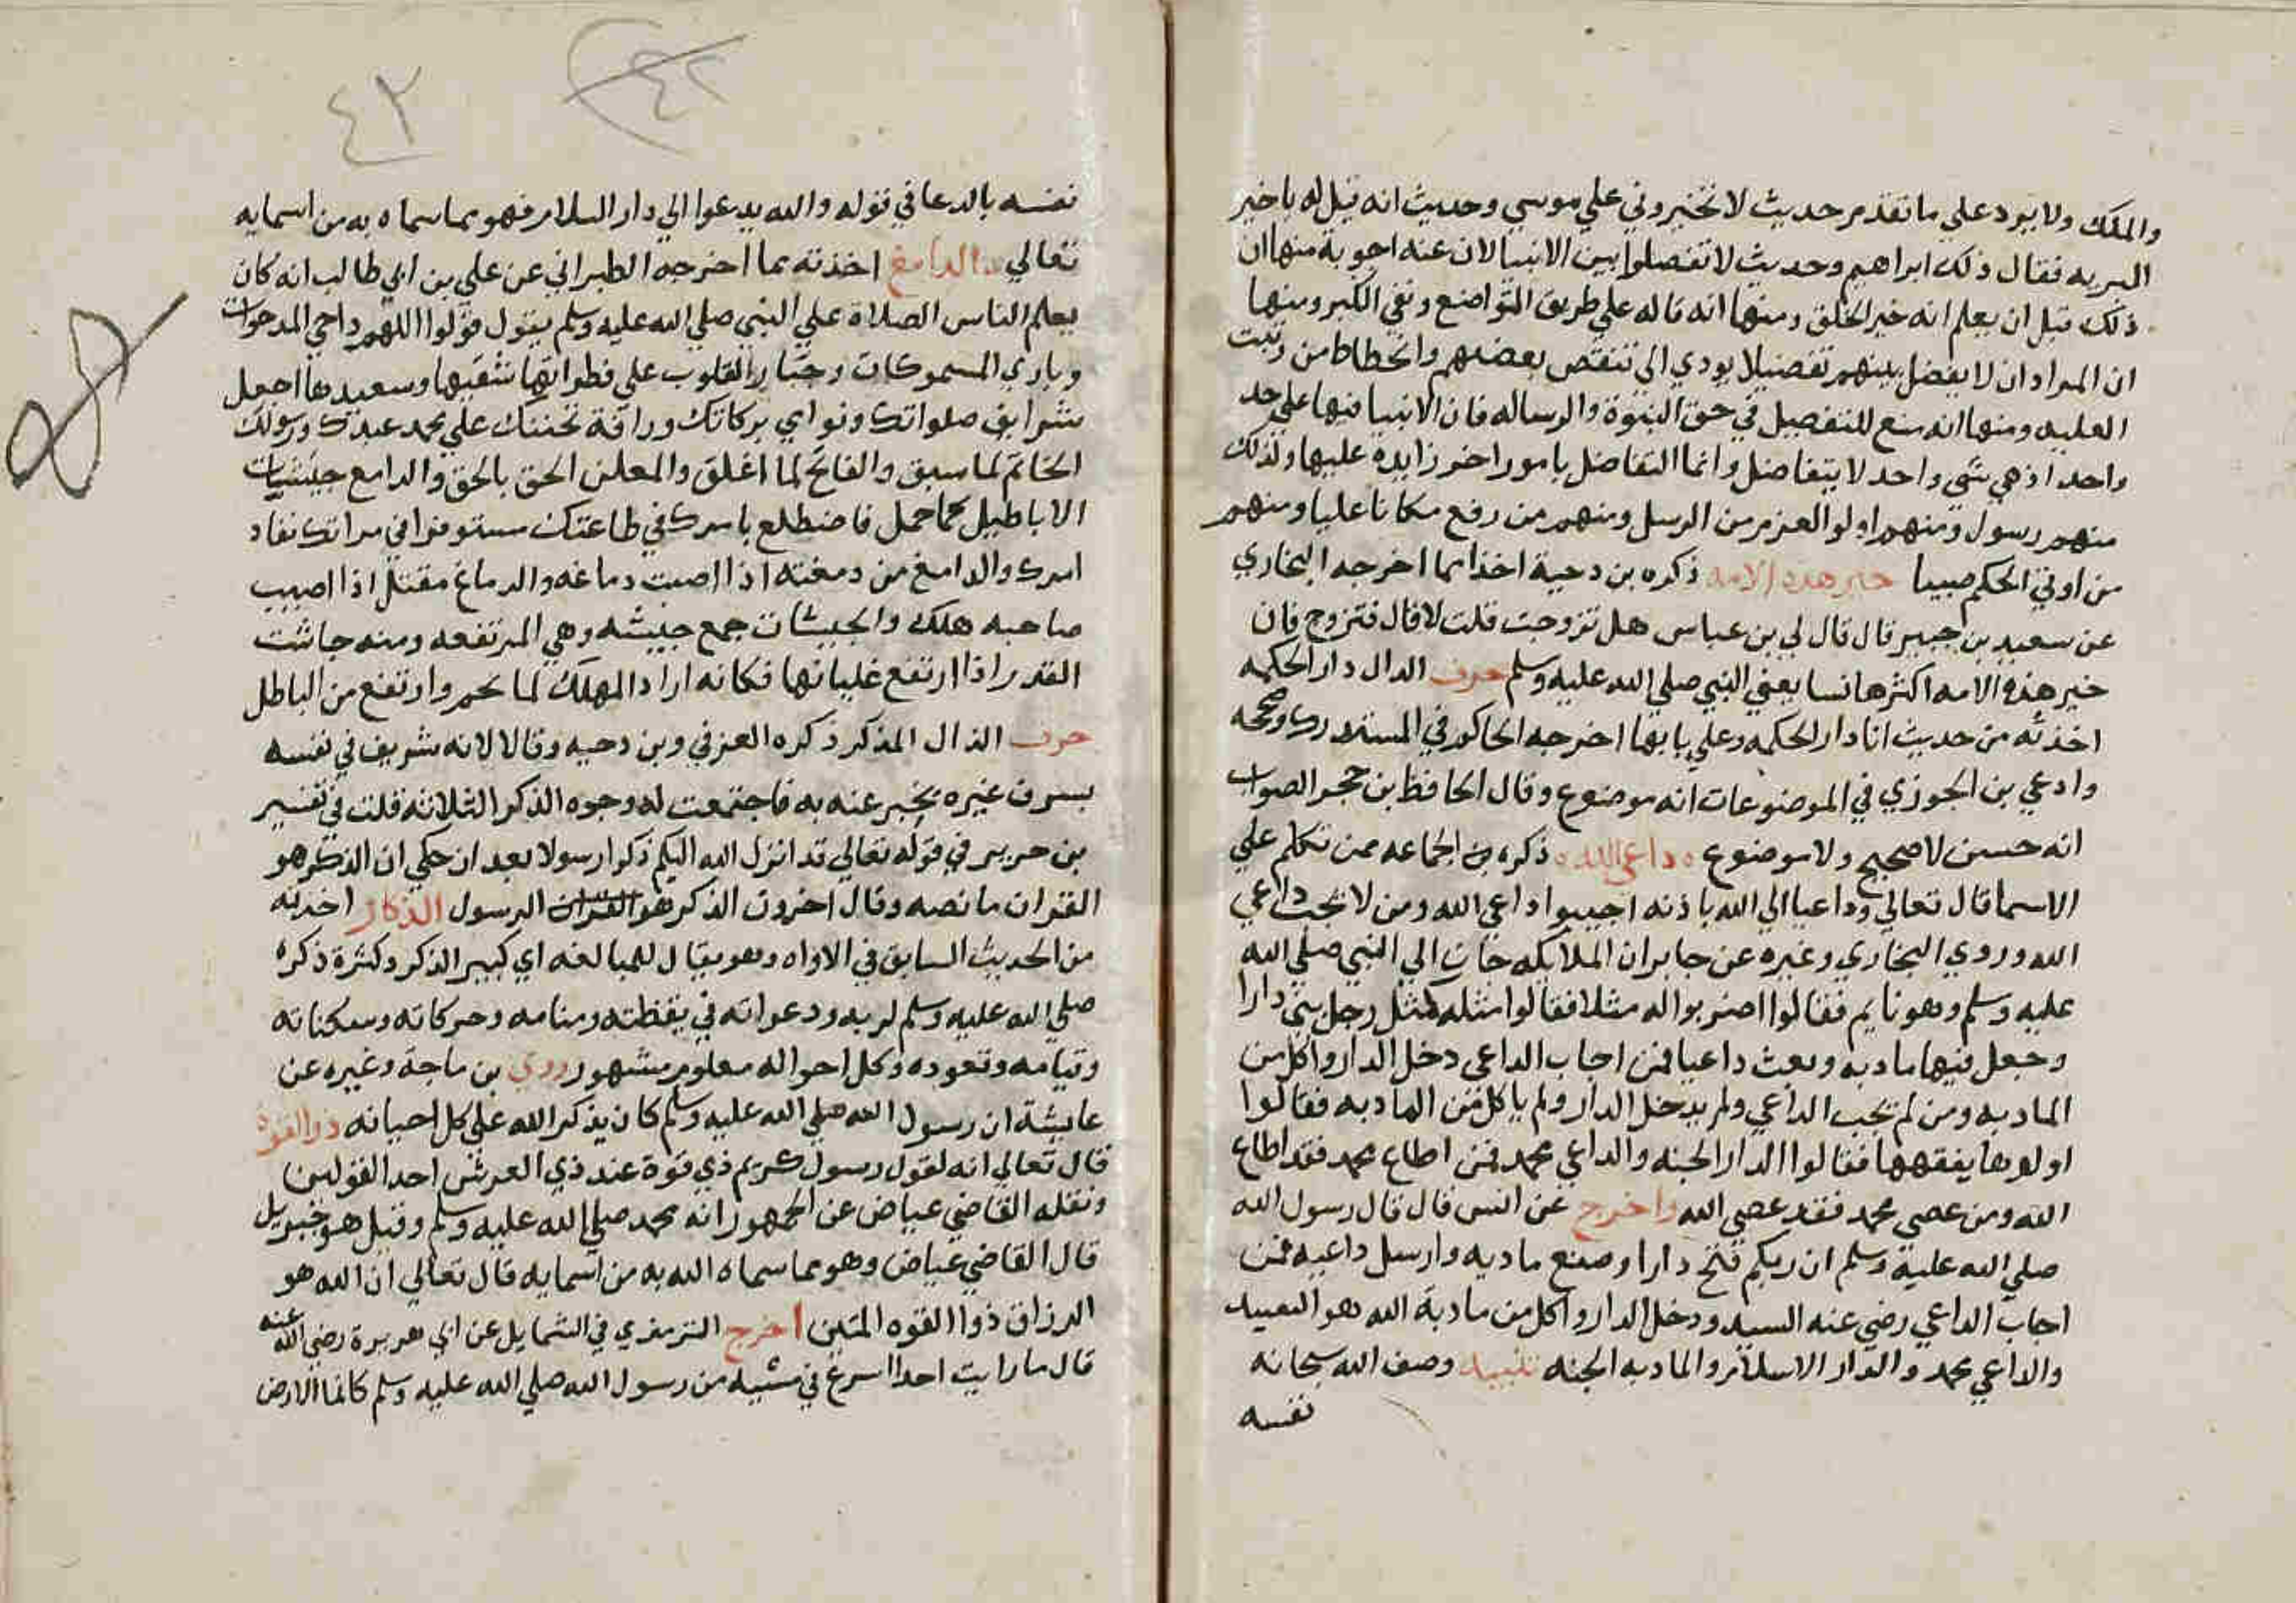 والملك ولا يرد علي ما تقدم حديث لا تخيروني علي موسي وحديث انه قيل له يا خير
البريه فقال ذلك ابراهيم وحديث لا تفضلوا بين الانبيا لان عنه اجوبة منها ان
ذلك قبل ان يعلم انه خير الخلق ومنها انه قاله علي طريق التواضع ونفي الكبر ومنها
ان المراد ان لا يفضل بينهم تفضيلا يودي الي تنقص بعضهم وانحطاط من رتبت
العليه ومنها انه منع للتفضيل في حق النبوة والرساله فان الانبيا فيها علي حد
واحد اذ هي شي واحد لا يتفاضل وانما التفاضل بامور اخر زايده عليها ولذلك
منهم رسول ومنهم اولو العزم من الرسل ومنهم من رفع مكانا عليا ومنهم
من اوتي الحكم صبيا خير هذه الامه ذكره بن دحية اخذا مما اخرجه البخاري
عن سعيد بن جبير قال قال لي بن عباس هل تزوجت قلت لا قال فتزوج فان
خير هذه الامه اكثرها نسا يعني النبي صلي الله عليه وسلم حرف الدال دار الحكمه
اخذته من حديث انا دار الحكمه وعلي بابها اخرجه الحاكم في المستدرك وصححه
وادعي بن الجوزي في الموضوعات انه موضوع وقال الحافظ بن حجر الصواب
انه حسن لا صحيح ولا موضوع داعي الله ذكره من الجماعه ممن تكلم علي
الاسما قال تعالي وداعيا الي الله باذنه اجيبوا داعي الله ومن لا يجب داعي
الله وروي البخاري وغيره عن جابر ان الملايكه جات الي النبي صلي الله
عليه وسلم وهو نايم فقالوا اضربوا له مثلا فقالوا مثله كمثل رجل بني دارا
وجعل فيها مادبه وبعث داعيا فمن اجاب الداعي دخل الدار واكل من
المادبه ومن لم يجب الداعي ولم يدخل الدار ولم ياكل من المادبه فقالوا
اولوها يفقهها فقالوا الدار الجنه والداعي محمد فمن اطاع محمد فقد اطاع
الله ومن عصي محمد فقد عصي الله واخرج عن انس قال قال رسول الله
صلي الله عليه وسلم ان ربكم فتح دارا وصنع مادبه وارسل داعيه فمن
اجاب الداعي رضي عنه السيد ودخل الدار واكل من مادبة الله هو السيد
والداعي محمد والدار الاسلام والمادبه الجنه تنبيه وصف الله سبحانه
نفسه
٤٢
٤٢
نفسه بالدعا في قوله والله يدعوا الي دار السلام فهو مما سماه به من اسمايه
تعالي الدامغ اخذته مما اخرجه الطبراني عن علي بن ابي طالب انه كان
يعلم الناس الصلاة علي النبي صلي الله عليه وسلم يقول قولوا اللهم داحي المدحوات
وباري المسموكات وجبار القلوب علي فطراتها شقيها وسعيدها اجعل
شرايف صلواتك ونوامي بركاتك ورافة تحننك علي محمد عبدك ورسولك
الخاتم لما سبق والفاتح لما اغلق والمعلن الحق بالحق والدامغ جيشيات
الاباطيل كما حمل فاضطلع بامرك في طاعتك مستوفزا في مراتك نفاد
امرك والدامغ من دمغته اذا اصبت دماغه والدماغ مقتل اذا اصيب
صاحبه هلك والجيشات جمع جيشه وهي المرتفعه ومنه جاشت
القدر اذا ارتفع غليانها فكانه اراد المهلك لما نجم وارتفع من الباطل
حرف الذال المذكر ذكره العزفي وبن دحيه وقالا لانه شريف في نفسه
يشرف غيره يخبر عنه به فاجتمعت له وجوه الذكر الثلاثه قلت في تفسير
بن جرير في قوله تعالي قد انزل الله اليكم ذكرا رسولا بعد ان حكي ان الذكر هو
القران ما نصه وقال اخرون الذكر هو القران الرسول الذكار اخذته
من الحديث السابق في الاواه وهو يقال للمبالغه اي كبير الذكر وكثرة ذكره
صلي الله عليه وسلم لربه ودعواته في يقظته ومنامه وحركاته وسكناته
وقيامه وقعوده وكل احواله معلوم مشهور روي بن ماجة وغيره عن
عايشة ان رسول الله صلي الله عليه وسلم كان يذكر الله علي كل احيانه ذو القوه
قال تعالي انه لقول رسول كريم ذي قوة عند ذي العرش احد القولين
ونقله القاضي عياض عن الجمهور انه محمد صلي الله عليه وسلم وقيل هو جبريل
قال القاضي عياض وهو مما سماه الله به من اسمايه قال تعالي ان الله هو
الرزاق ذوا القوه المتين اخرج الترمذي في الشمايل عن ابي هريرة رضي الله عنه
قال ما رايت احدا اسرع في مشيه من رسول الله صلي الله عليه وسلم كانما الارض